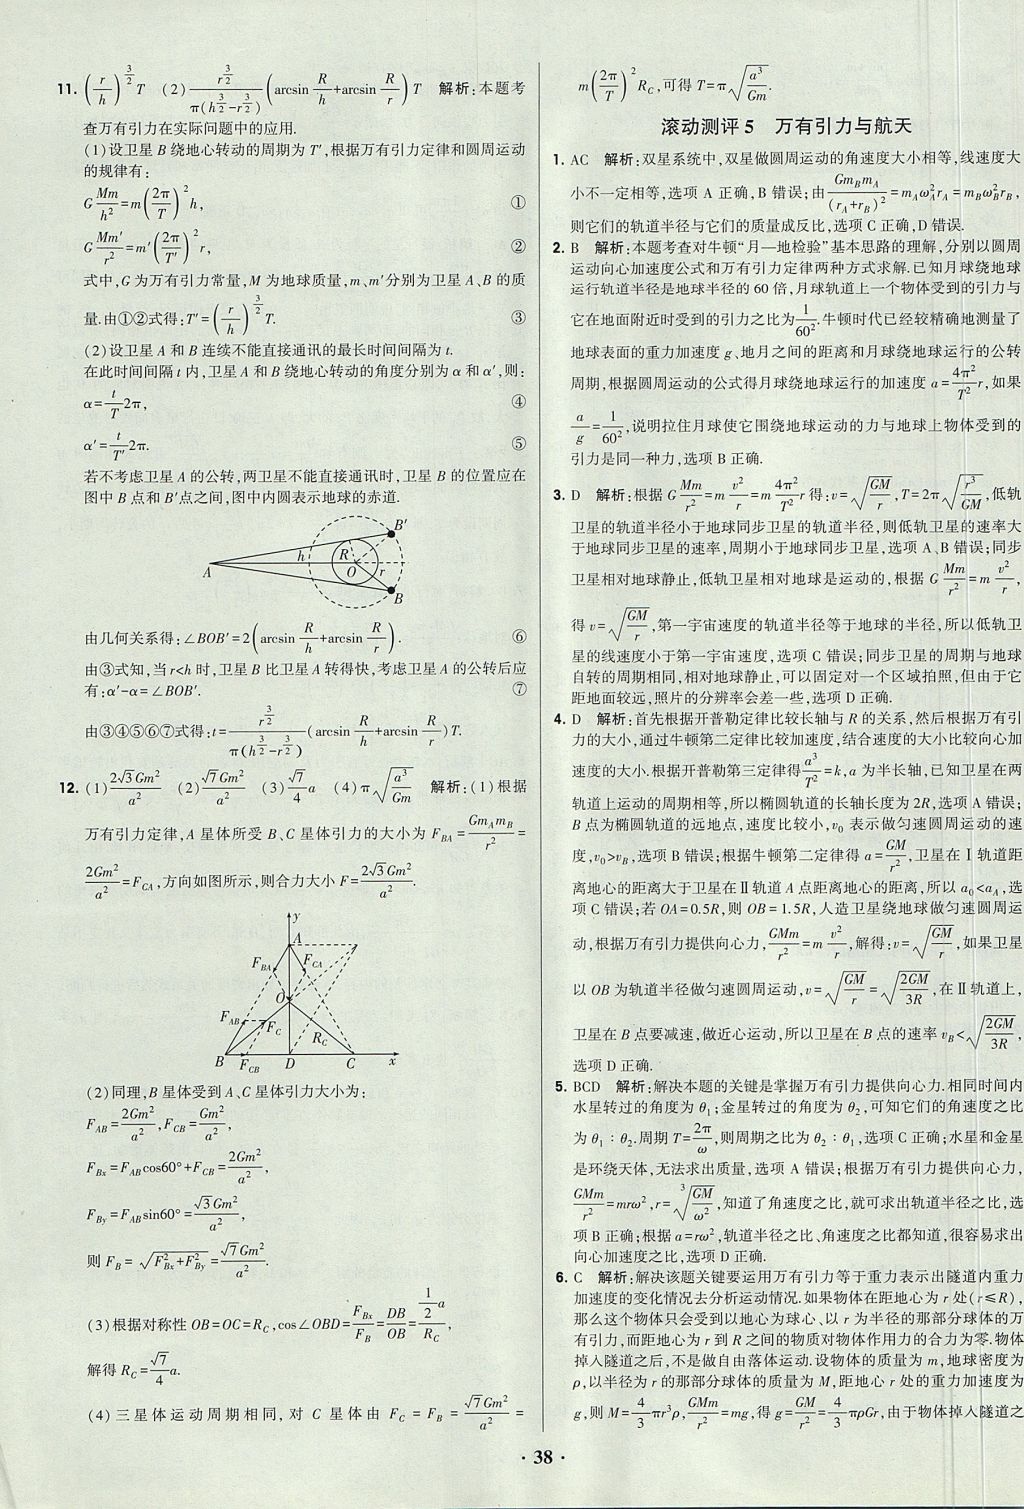 11. (r/h)^{3/2}T (2) r^{3/2}/π(h^{3/2}-r^{3/2}) (arcsin R/h+arcsin R/r)T 解析:本题考
查万有引力在实际问题中的应用.
(1)设卫星 B 绕地心转动的周期为 T′,根据万有引力定律和圆周运动
的规律有:
G Mm/h²=m(2π/T)²h, ①
G Mm′/r²=m′(2π/T′)²r, ②
式中,G为万有引力常量,M为地球质量,m、m′分别为卫星A、B的质
量.由①②式得:T′=(r/h)^{3/2}T. ③
(2)设卫星 A 和 B 连续不能直接通讯的最长时间间隔为 t.
在此时间间隔 t 内,卫星 A 和 B 绕地心转动的角度分别为 α 和 α′,则:
α=t/T 2π, ④
α′=t/T′ 2π. ⑤
若不考虑卫星 A 的公转,两卫星不能直接通讯时,卫星 B 的位置应在
图中 B 点和 B′点之间,图中内圆表示地球的赤道.
A h R O r B′ B
由几何关系得:∠BOB′=2(arcsin R/h+arcsin R/r). ⑥
由③式知,当 r<h 时,卫星 B 比卫星 A 转得快,考虑卫星 A 的公转后应
有:α′-α=∠BOB′. ⑦
由③④⑤⑥⑦式得:t=r^{3/2}/π(h^{3/2}-r^{3/2}) (arcsin R/h+arcsin R/r)T.
12. (1)2√3Gm²/a² (2)√7Gm²/a² (3)√7/4 a (4)π√(a³/Gm) 解析:(1)根据
万有引力定律,A 星体所受 B、C 星体引力的大小为 F_{BA}=Gm_Am_B/r²=
2Gm²/a²=F_{CA},方向如图所示,则合力大小 F=2√3Gm²/a².
y A F_{BA} F_{CA} O F_{AB} F_C R_C B F_{CB} D C x
(2)同理,B 星体受到 A、C 星体引力大小为:
F_{AB}=2Gm²/a²,F_{CB}=Gm²/a²,
F_{Bx}=F_{AB}cos60°+F_{CB}=2Gm²/a²,
F_{By}=F_{AB}sin60°=√3Gm²/a²,
则 F_B=√(F²_{Bx}+F²_{By})=√7Gm²/a².
(3)根据对称性 OB=OC=R_C,cos∠OBD=F_{Bx}/F_B=DB/OB=(1/2 a)/R_C,
解得 R_C=√7/4 a.
(4) 三 星 体 运 动 周 期 相 同, 对 C 星 体 由 F_C=F_B=√7Gm²/a²=
m(2π/T)²R_C,可得 T=π√(a³/Gm).
滚动测评 5 万有引力与航天
1. AC 解析:双星系统中,双星做圆周运动的角速度大小相等,线速度大
小不一定相等,选项 A 正确,B 错误;由 Gm_Bm_A/(r_A+r_B)²=m_Aω²_Ar_A=m_Bω²_Br_B,
则它们的轨道半径与它们的质量成反比,选项 C 正确,D 错误.
2. B 解析:本题考查对牛顿“月—地检验”基本思路的理解,分别以圆周
运动向心加速度公式和万有引力定律两种方式求解.已知月球绕地球
运行轨道半径是地球半径的 60 倍,月球轨道上一个物体受到的引力与
它在地面附近时受到的引力之比为1/60².牛顿时代已经较精确地测量了
地球表面的重力加速度 g、地月之间的距离和月球绕地球运行的公转
周期,根据圆周运动的公式得月球绕地球运行的加速度 a=4π²/T² r,如果
a/g=1/60²,说明拉住月球使它围绕地球运动的力与地球上物体受到的
引力是同一种力,选项 B 正确.
3. D 解析:根据 G Mm/r²=m v²/r=m 4π²/T² r 得:v=√(GM/r),T=2π√(r³/GM),低轨
卫星的轨道半径小于地球同步卫星的轨道半径,则低轨卫星的速率大
于地球同步卫星的速率,周期小于同步卫星,选项 A、B 错误;同步
卫星相对地球静止,低轨卫星相对地球是运动的,根据 G Mm/r²=m v²/r,
得 v=√(GM/r),第一宇宙速度的轨道半径等于地球的半径,所以低轨卫
星的线速度小于第一宇宙速度,选项 C 错误;同步卫星的周期与地球
自转的周期相同,相对地球静止,可以固定对一个区域拍照,但由于它
距地面较远,照片的分辨率会差一些,选项 D 正确.
4. D 解析:首先根据开普勒定律比较长轴与 R 的关系,然后根据万有引
力的大小,通过牛顿第二定律比较加速度,结合速度的大小比较向心加
速度的大小.根据开普勒第三定律得a³/T²=k,a 为半长轴,已知卫星在两
轨道上运动的周期相等,所以椭圆轨道的长轴长度为 2R,选项 A 错误;
B 点为椭圆轨道的远地点,速度比较小,v₀ 表示做匀速圆周运动的速
度,v₀>v_B,选项 B 错误;根据牛顿第二定律得 a=GM/r²,卫星在Ⅰ轨道距
离地心的距离大于卫星在Ⅱ轨道 A 点距离地心的距离,所以 a₀<a_A,选
项 C 错误;若 OA=0.5R,则 OB=1.5R,人造卫星绕地球做匀速圆周运
动,根据万有引力提供向心力,GMm/r²=m v²/r,解得:v=√(GM/r),如果卫星
以 OB 为轨道半径做匀速圆周运动,v=√(GM/r)=√(2GM/3R),在Ⅱ轨道上,
卫星在 B 点要减速,做近心运动,所以卫星在 B 点的速率 v_B<√(2GM/3R),
选项 D 正确.
5. BCD 解析:解决本题的关键是掌握万有引力提供向心力.相同时间内
水星转过的角度为 θ₁;金星转过的角度为 θ₂,可知它们的角速度之比
为 θ₁∶θ₂.周期 T=2π/ω,则周期之比为 θ₂∶θ₁,选项 C 正确;水星和金星
是环绕天体,无法求出质量,选项 A 错误;根据万有引力提供向心力,
GMm/r²=mrω²,r=∛(GM/ω²),知道了角速度之比,就可求出轨道半径之比,选
项 B 正确;根据 a=rω²,轨道半径之比、角速度之比都知道,很容易求出
向心加速度之比,选项 D 正确.
6. C 解析:解决该题关键要运用万有引力等于重力表示出隧道内重力
加速度的变化情况去分析运动情况.如果物体在距地心为 r 处(r≤R),
那么这个物体只会受到以地心为球心、以 r 为半径的那部分球体的万
有引力,而距地心为 r 到 R 之间的物质对物体作用力的合力为零.物体
掉入隧道之后,不是做自由落体运动.设物体的质量为 m,地球密度为
ρ,以 r 为半径的那部分球体的质量为 M,距地心 r 处的重力加速度为
g,则 M=4/3 πr³ρ,GMm/r²=mg,得 g=GM/r²=4/3 πρGr,由于物体掉入隧道之
· 38 ·